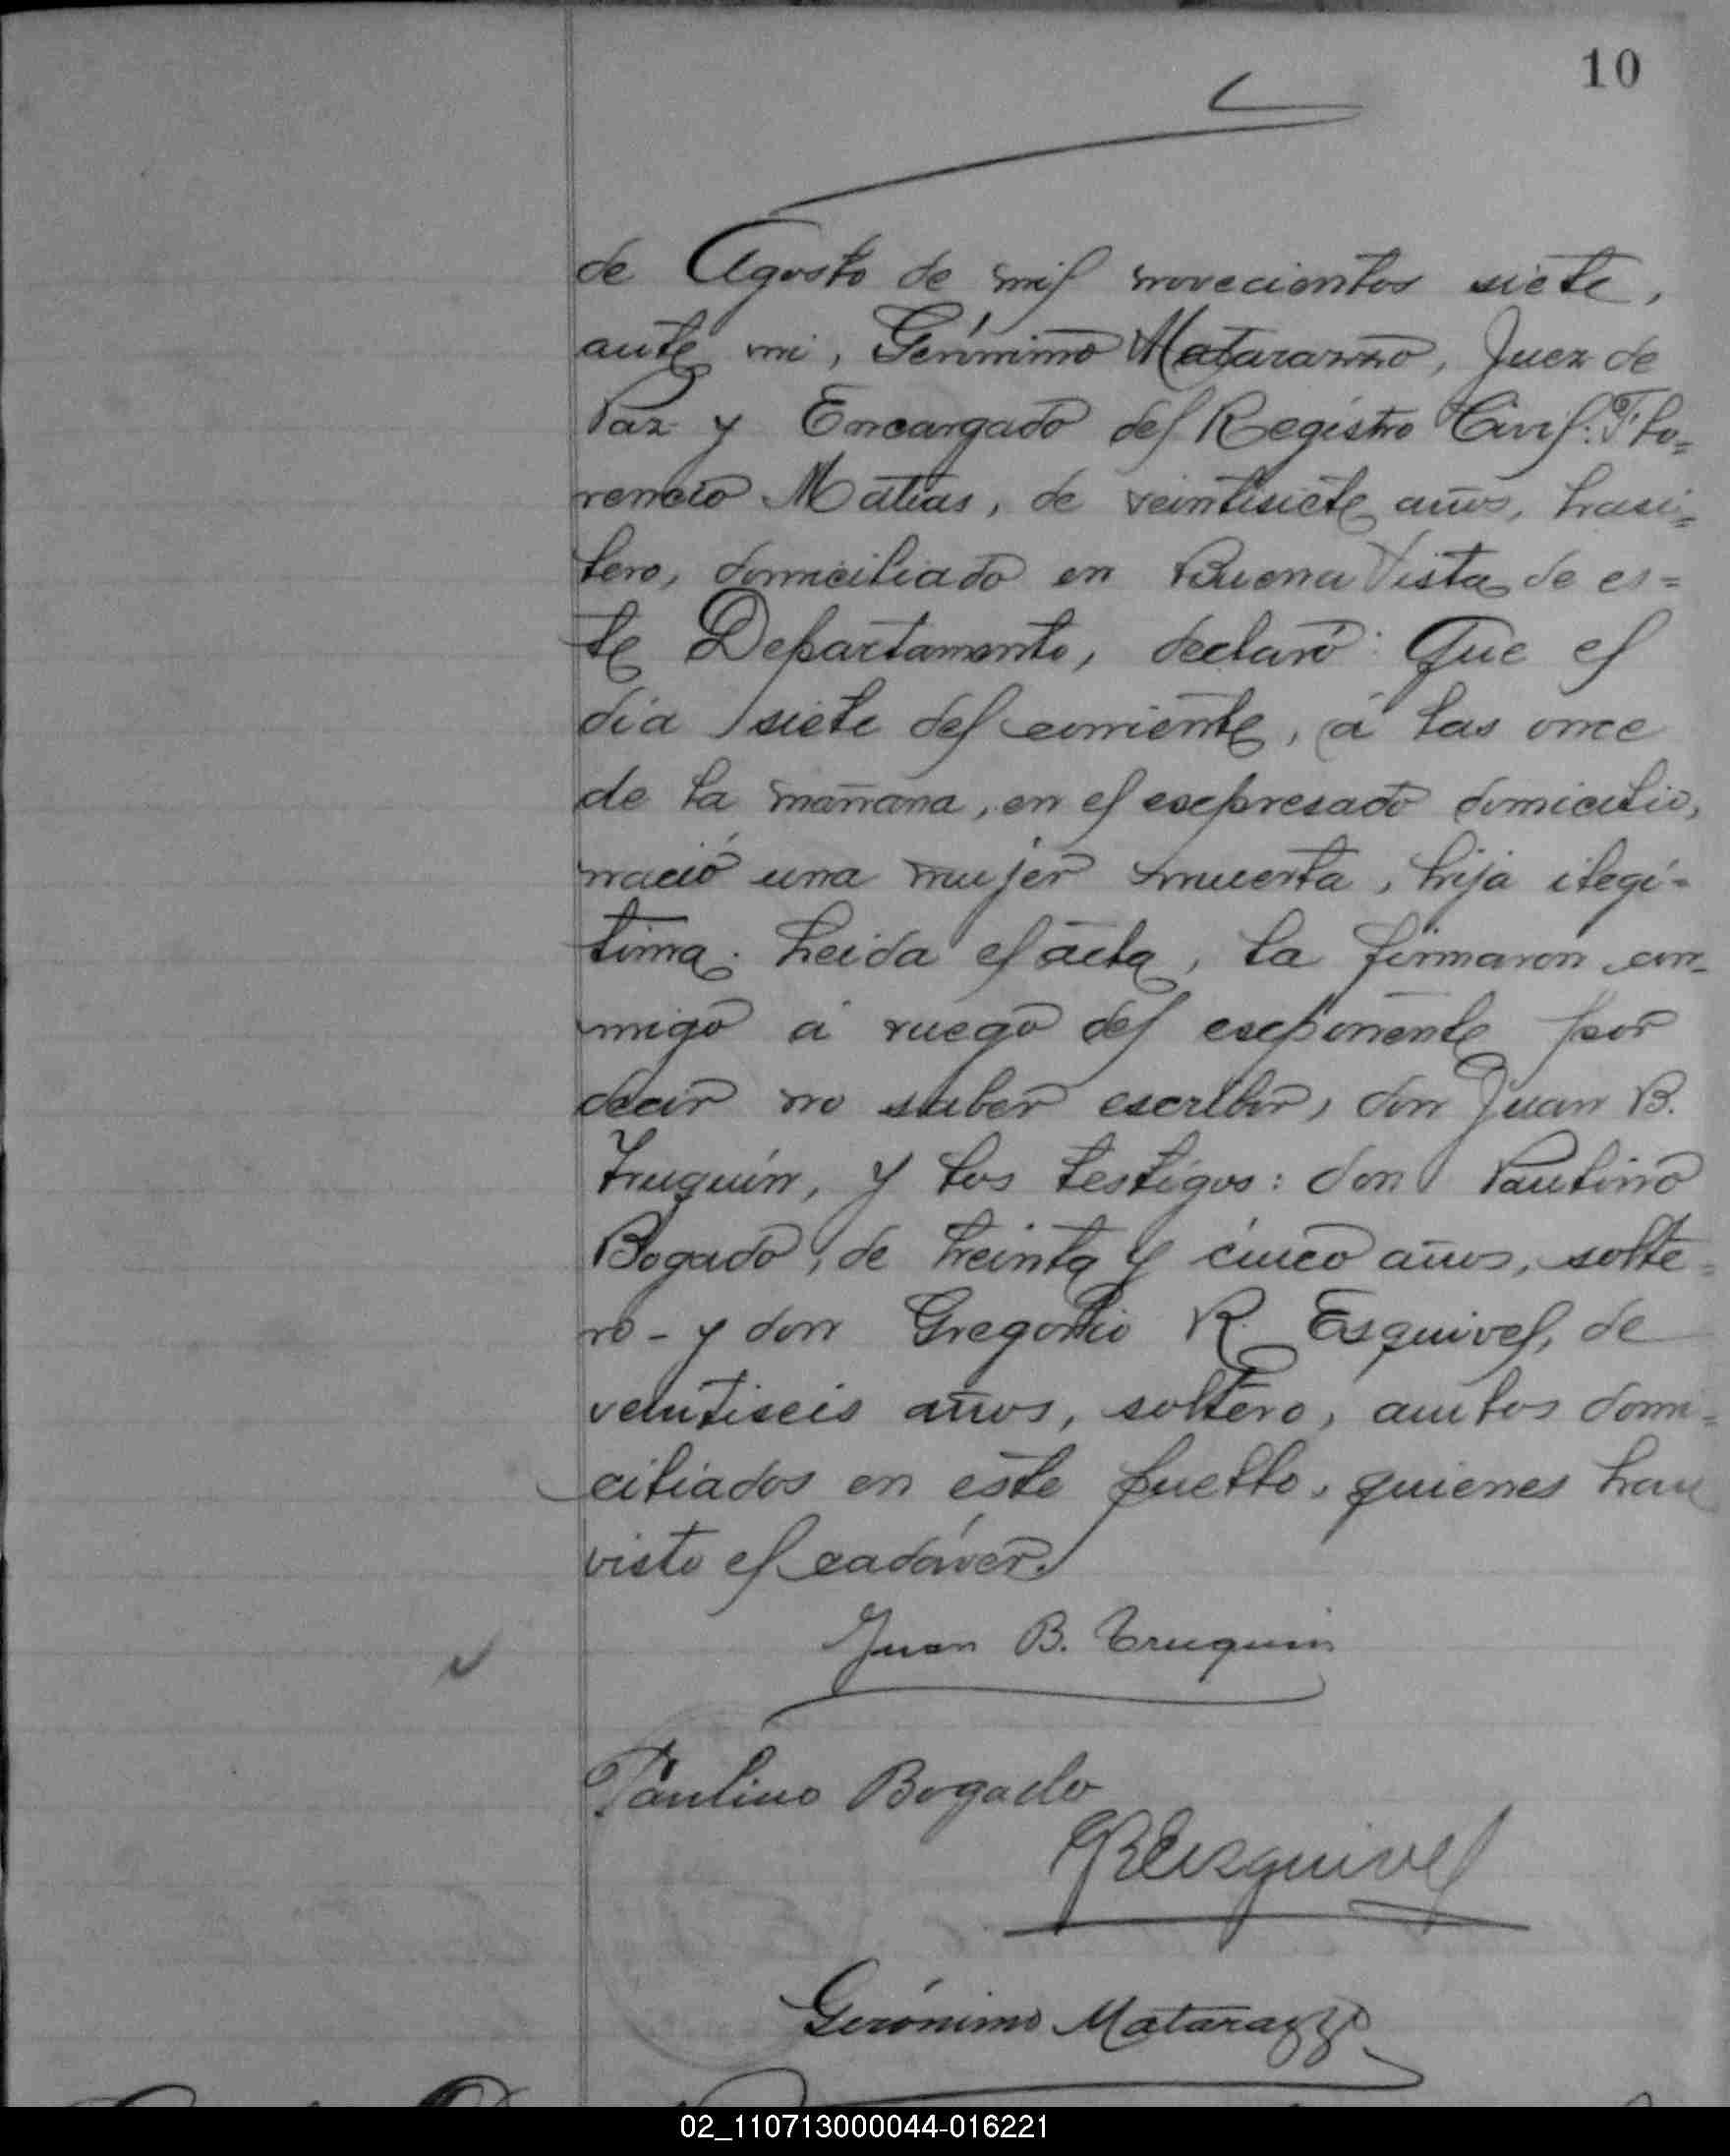 10
de Agosto de mil novecientos siete,
ante mi, Gerónimo Matarazzo, Juez de
Paz y Encargado del Registro Civil: Flo=
rencio Matias, de veintisiete años, brasi=
lero, domiciliado en Buena Vista de es=
te Departamento, declaró: Que el
dia siete del corriente, á las once
de la mañana, en el expresado domicilio,
nació una mujer muerta, hija ilegí=
tima. Leida el acta, la firmaron con-
migo á ruego del exponente por
decir no saber escribir, don Juan B.
Truquin, y los testigos: don Paulino
Bogado, de treinta y cinco años, solte=
ro - y don Gregorio R. Esquivel, de
veintiseis años, soltero, ambos domi=
ciliados en este pueblo, quienes han
visto el cadáver.
Juan B. Truquin
Paulino Bogado
GREsquivel
Gerónimo Matarazzo
02_110713000044-016221